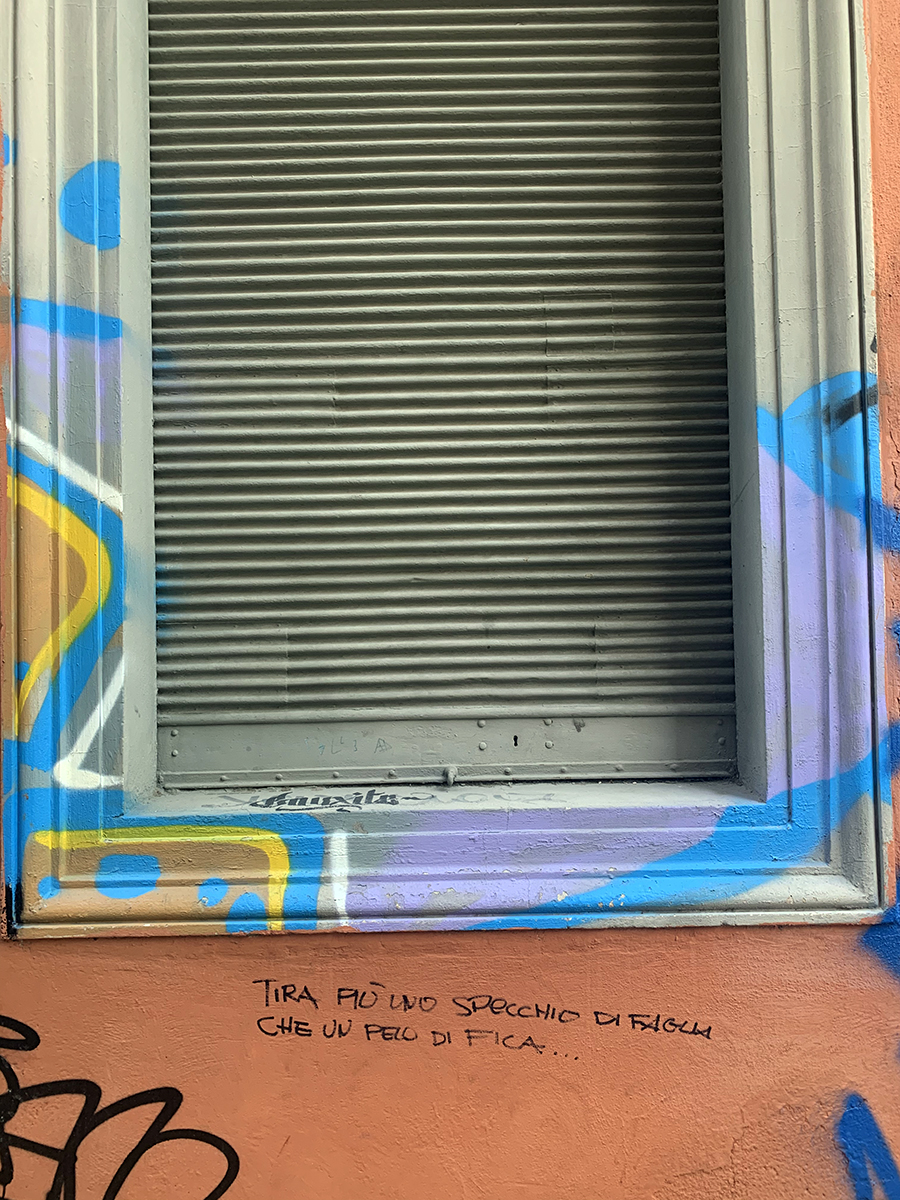 TIRA PIÙ UNO SPECCHIO DI FAGLIA
CHE UN PELO DI FICA...